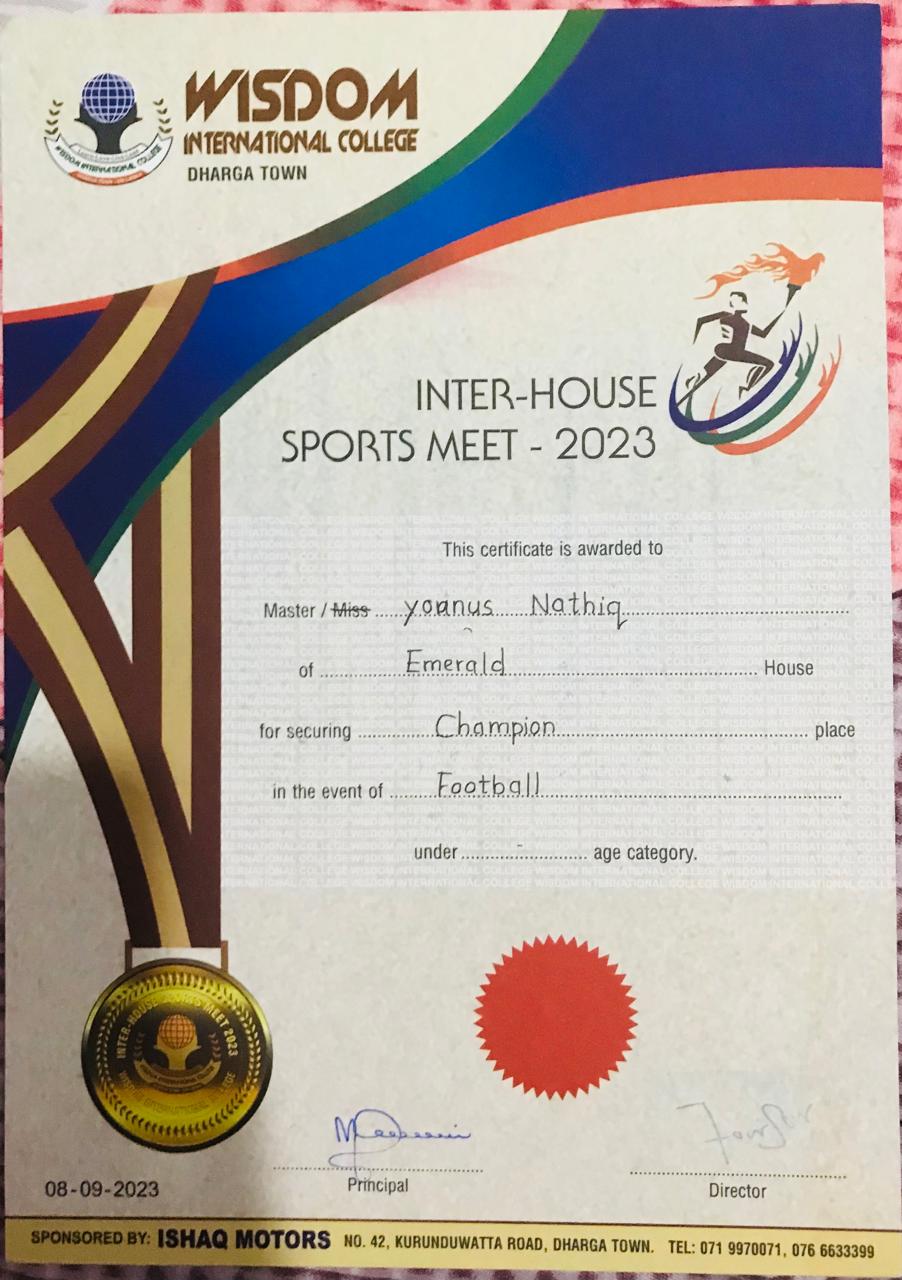 WISDOM
INTERNATIONAL COLLEGE
DHARGA TOWN
WISDOM INTERNATIONAL COLLEGE
INTER-HOUSE
SPORTS MEET - 2023
This certificate is awarded to
Master / Miss yoanus Nathiq
of Emerald House
for securing Champion place
in the event of Football
under - age category.
INTER-HOUSE SPORTS MEET 2023
WISDOM INTERNATIONAL COLLEGE
08-09-2023
Principal
Director
SPONSORED BY: ISHAQ MOTORS NO. 42, KURUNDUWATTA ROAD, DHARGA TOWN. TEL: 071 9970071, 076 6633399